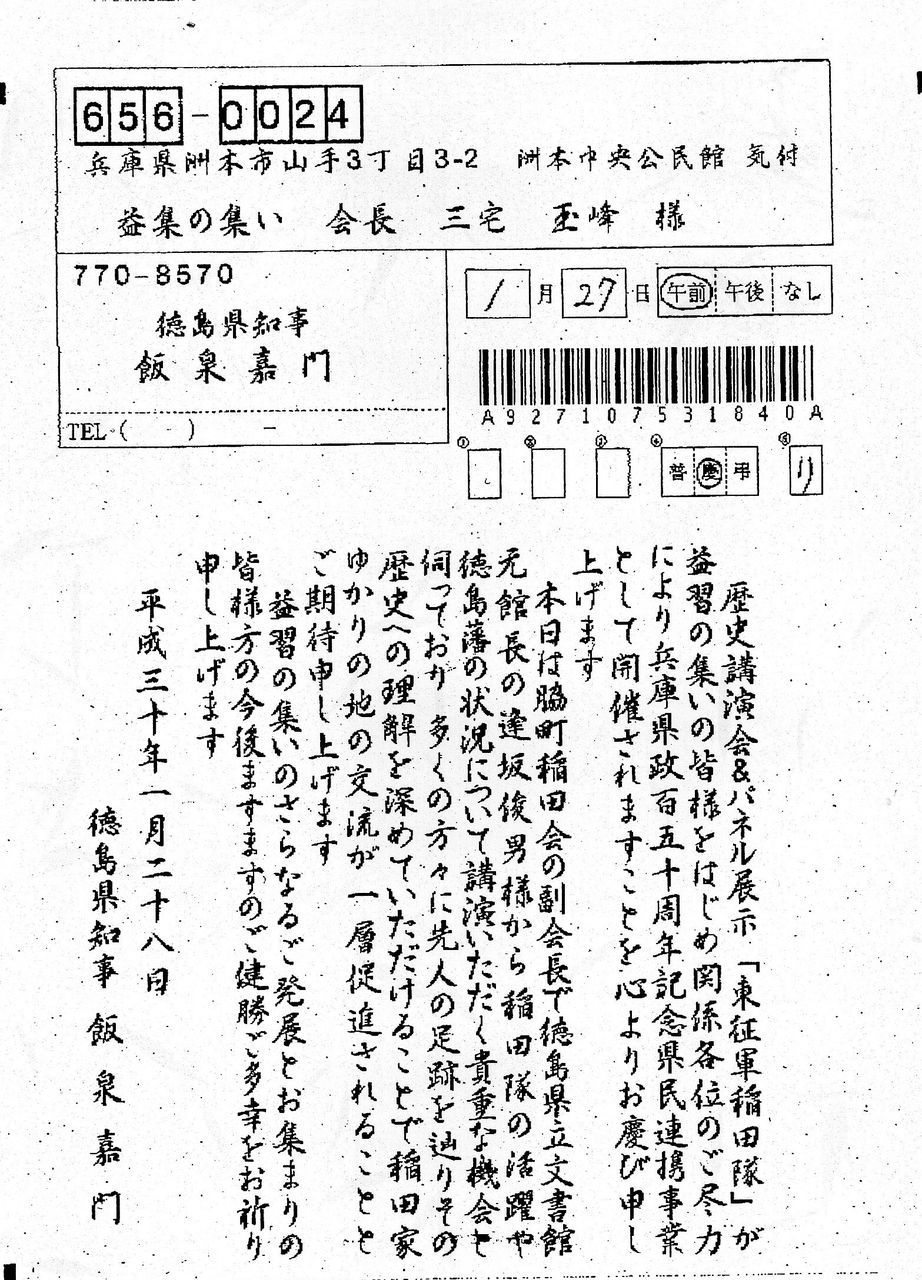 656-0024
兵庫県洲本市山手3丁目3-2 洲本中央公民館 気付
益集の集い 会長 三宅 玉峰 様
770-8570
徳島県知事
飯泉嘉門
TEL ( - ) -
1月27日 午前 午後 なし
A927107531840A
① ② ③ ④ ⑤
普 慶 弔 り
歴史講演会&パネル展示「東征軍稲田隊」が
益習の集いの皆様をはじめ関係各位のご尽力
により兵庫県政百五十周年記念県民連携事業
として開催されますことを心よりお慶び申し
上げます
本日は脇町稲田会の副会長で徳島県立文書館
元館長の逢坂俊男様から稲田隊の活躍や
徳島藩の状況について講演いただく貴重な機会と
伺っており 多くの方々に先人の足跡を辿りその
歴史への理解を深めていただけることで稲田家
ゆかりの地の交流が一層促進されることと
ご期待申し上げます
益習の集いのさらなるご発展とお集まりの
皆様方の今後ますますのご健勝ご多幸をお祈り
申し上げます
平成三十年一月二十八日
徳島県知事 飯泉嘉門